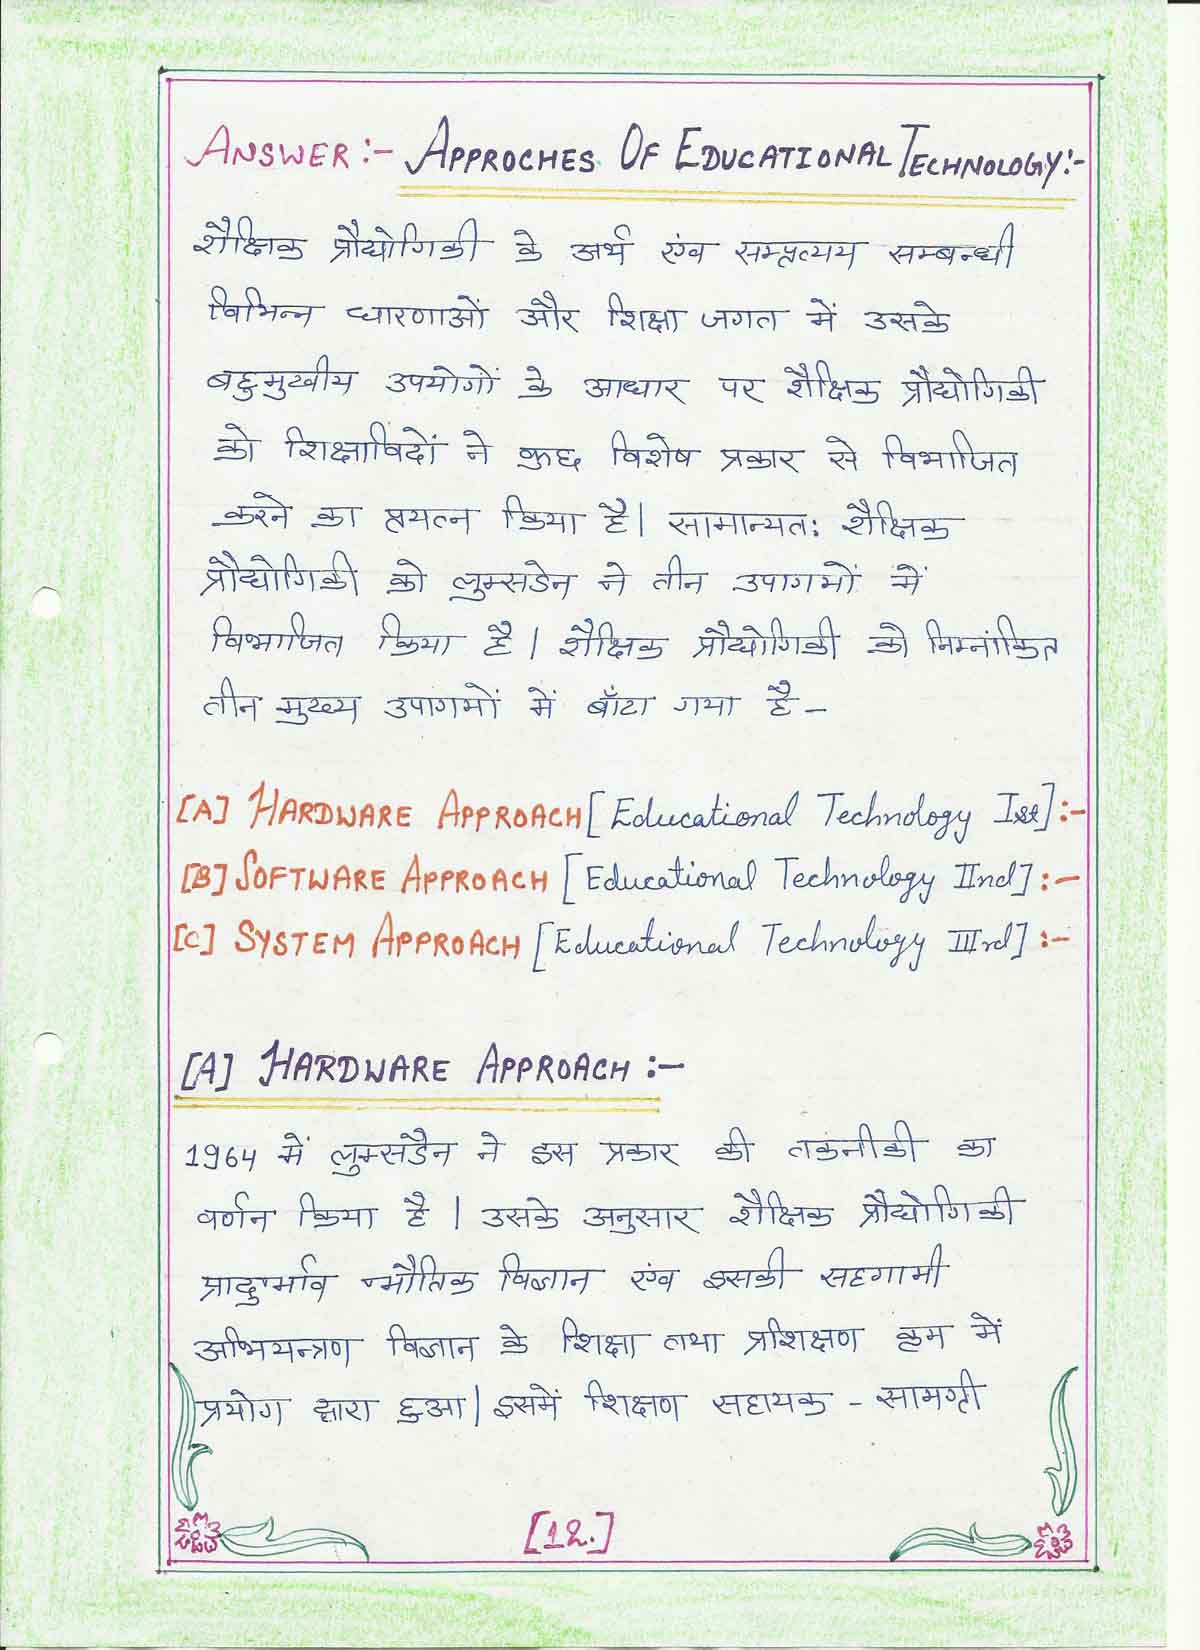 ANSWER :- APPROCHES OF EDUCATIONAL TECHNOLOGY:-
शैक्षिक प्रौद्योगिकी के अर्थ एंव सम्प्रत्यय सम्बन्धी
विभिन्न धारणाओं और शिक्षा जगत में उसके
बहुमुखीय उपयोगों के आधार पर शैक्षिक प्रौद्योगिकी
को शिक्षाविदों ने कुछ विशेष प्रकार से विभाजित
करने का प्रयत्न किया है। सामान्यत: शैक्षिक
प्रौद्योगिकी को लुम्सडेन ने तीन उपागमों में
विभाजित किया है। शैक्षिक प्रौद्योगिकी को निम्नांकित
तीन मुख्य उपागमों में बाँटा गया है -
[A] HARDWARE APPROACH [Educational Technology Ist] :-
[B] SOFTWARE APPROACH [Educational Technology IInd] :-
[C] SYSTEM APPROACH [Educational Technology IIIrd] :-
[A] HARDWARE APPROACH :-
1964 में लुम्सडैन ने इस प्रकार की तकनीकी का
वर्णन किया है। उसके अनुसार शैक्षिक प्रौद्योगिकी
प्रादुर्भाव भौतिक विज्ञान एंव इसकी सहगामी
अभियन्त्रण विज्ञान के शिक्षा तथा प्रशिक्षण क्रम में
प्रयोग द्वारा हुआ। इसमें शिक्षण सहायक - सामग्री
[12.]